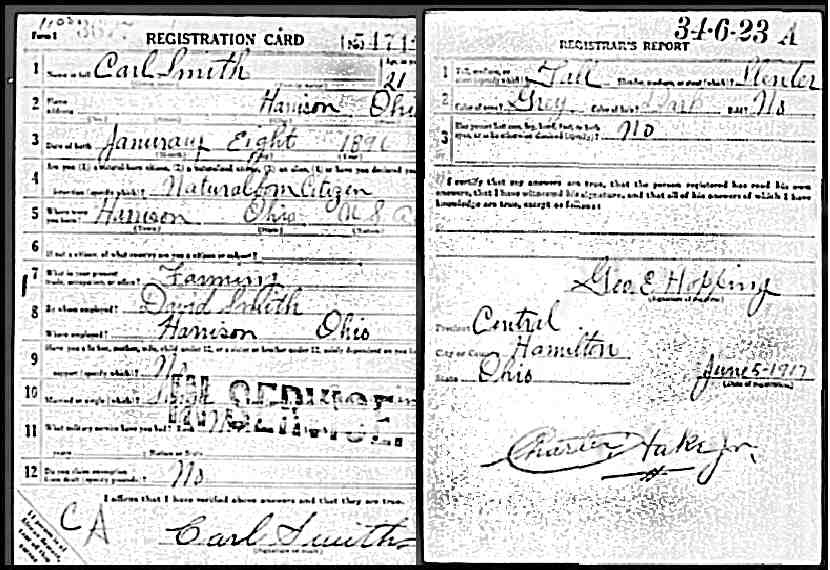 Form 1 REGISTRATION CARD (No.
1 Name in full Carl Smith Age, in yrs. 21
2 Home address Harrison Ohio
3 Date of birth Januray Eight
4 Are you (1) a natural-born citizen, (2) a naturalized citizen, (3) an alien, (4) or have you declared your
intention (specify which)? Natural born Citizen
5 Where were you born? Harrison Ohio U S A
(Town) (State) (Nation)
6 If not a citizen, of what country are you a citizen or subject?
7 What is your present trade, occupation, or office? Farming
8 By whom employed? David Smith
Where employed? Harrison Ohio
9 Have you a father, mother, wife, child under 12, or a sister or brother under 12, solely dependent on you for
support (specify which)? No
10 Married or single (which)?
IN SERVICE.
11 What military service have you had? Rank
years Nation or State
12 Do you claim exemption from draft (specify grounds)? No
I affirm that I have verified above answers and that they are true.
C A
Carl Smith
(Signature or mark)
34-6-23 A
REGISTRAR'S REPORT
1 Tall, medium, or short (specify which)? Tall Slender, medium, or stout (which)? Slenter
2 Color of eyes? Grey Color of hair? Dark Bald? No
3 Has person lost arm, leg, hand, foot, or both eyes, or is he otherwise disabled (specify)? No
I certify that my answers are true, that the person registered has read his own
answers, that I have witnessed his signature, and that all of his answers of which I have
knowledge are true, except as follows:
Geo. E. Hopping
(Signature of registrar)
Precinct Central
City or County Hamilton
State Ohio June 5-1917
(Date of registration)